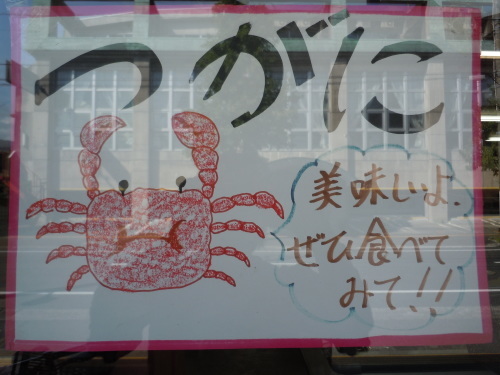 つがに
美味しいよ.
ぜひ食べて
みて!!